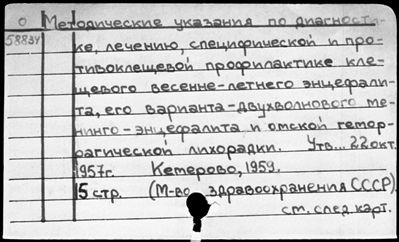 О Методические указания по диагности-
5883У ке, лечению, специфической и про-
тивоклещевой профилактике кле-
щевого весенне-летнего энцефали-
та, его варианта-двухволнового ме-
нинго-энцефалита и омской гемор-
рагической лихорадки. Утв... 22 окт.
1957г. Кемерово, 1959.
15 стр. (М-во здравоохранения СССР)
см. след. карт.